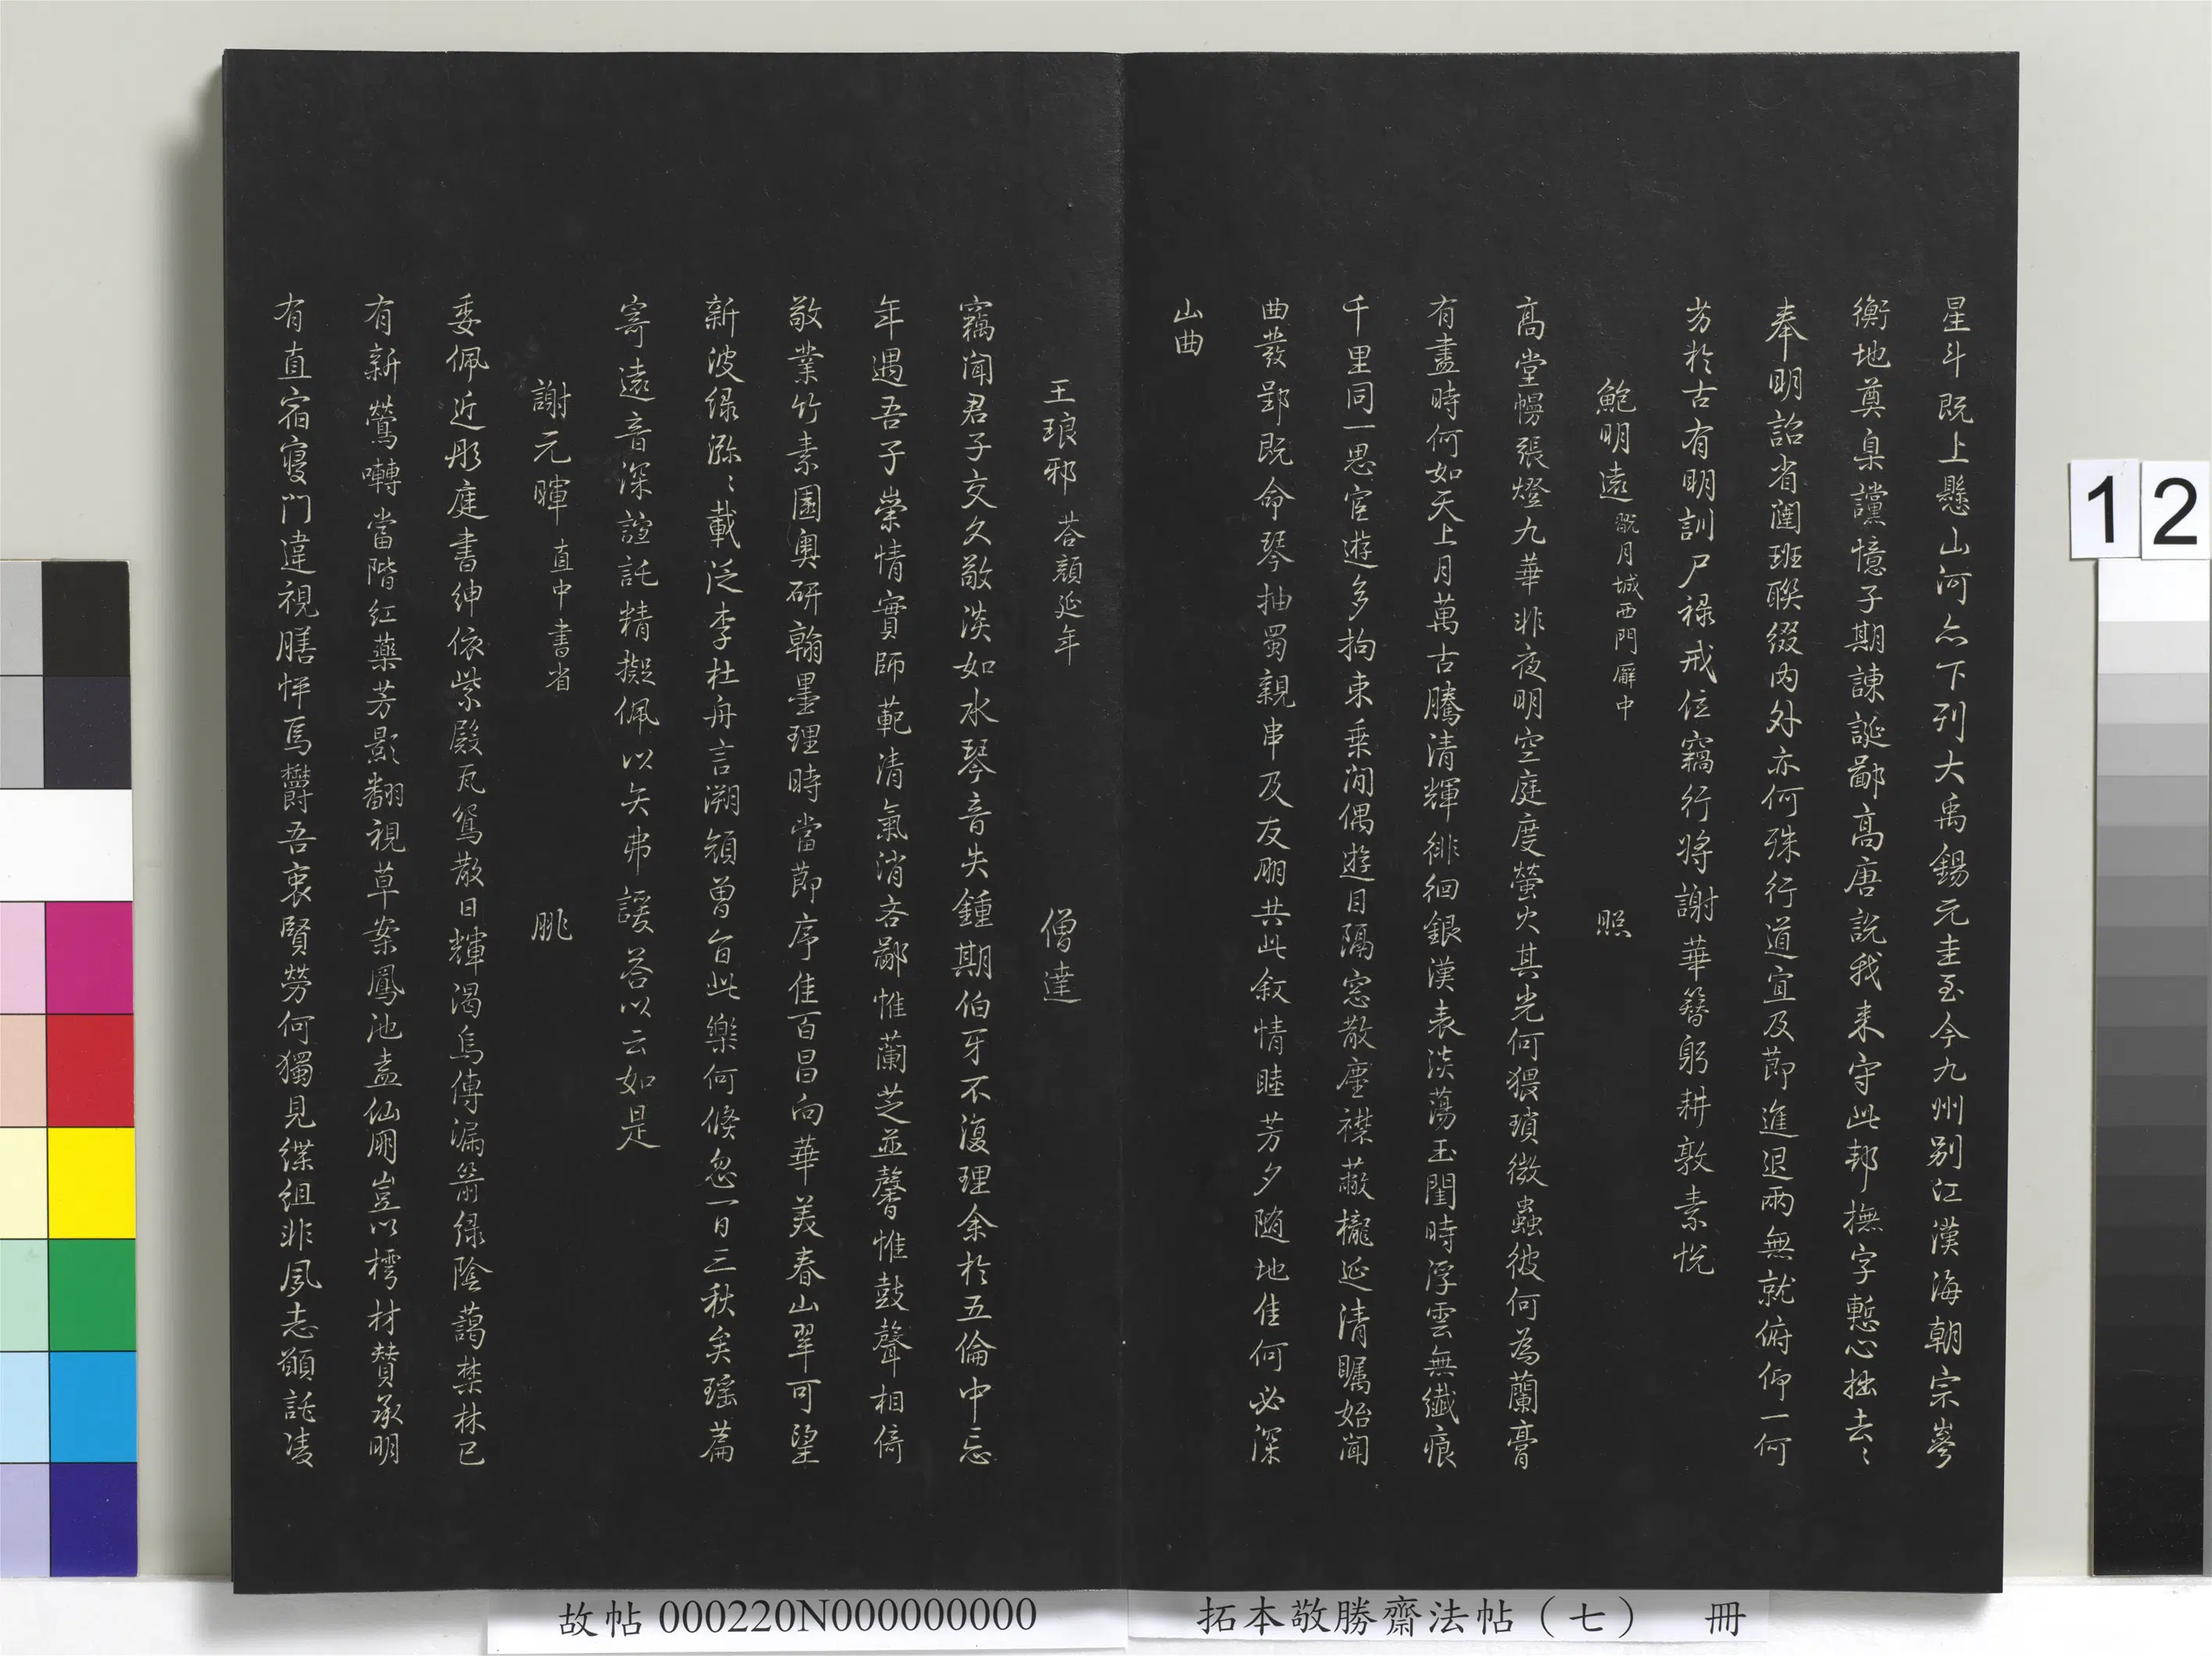 星斗既上懸山河亦下列大禹錫元圭至今九州別江漢海朝宗岑
衡地奠臬讜憶子期諫誕鄙高唐説我来守此邦撫字慙心拙去〻
奉明詔省闥班聯綴内外亦何殊行道宜及節進退兩無就俯仰一何
芳於古有明訓尸禄戒位竊行将謝華簪躬耕敦素悦
鮑明遠 翫月城西門廨中 照
高堂幔張燈九華非夜明空庭度螢火其光何猥瑣微蟲彼何為蘭膏
有盡時何如天上月萬古騰清輝徘徊銀漢表淡蕩玉閨時浮雲無纖痕
千里同一思宦遊多拘束乗閒偶遊目隔窓散塵襟蔽櫳延清矚始聞
曲發郢既命琴抽蜀親串及友朋共此叙情睦芳夕随地佳何必深
山曲
王琅邪 荅顔延年 僧達
竊聞君子交久敬淡如水琴音失鍾期伯牙不復理余於五倫中忘
年遇吾子崇情實師範清氣消吝鄙惟蘭芝並馨惟鼓聲相倚
敬業竹素園奥研翰墨理時當節序佳百昌向華美春山翠可望
新波緑㴽〻載泛李杜舟言溯頴曽旨此樂何倏忽一日三秋矣瑶篇
寄遠音深誼託精擬佩以矢弗諼荅以云如是
謝元暉 直中書省 朓
委佩近彤庭書紳依紫殿瓦鴛散日輝渴烏傳漏箭緑陰藹禁林已
有新鶯囀當階紅藥芳影翻視草案鳳池盍仙朋豈以樗材賛承明
有直宿寝門違視膳怦焉欝吾衷賢勞何獨見緤組非夙志顧託凌
12
故帖 000220N000000000
拓本敬勝齋法帖（七） 冊